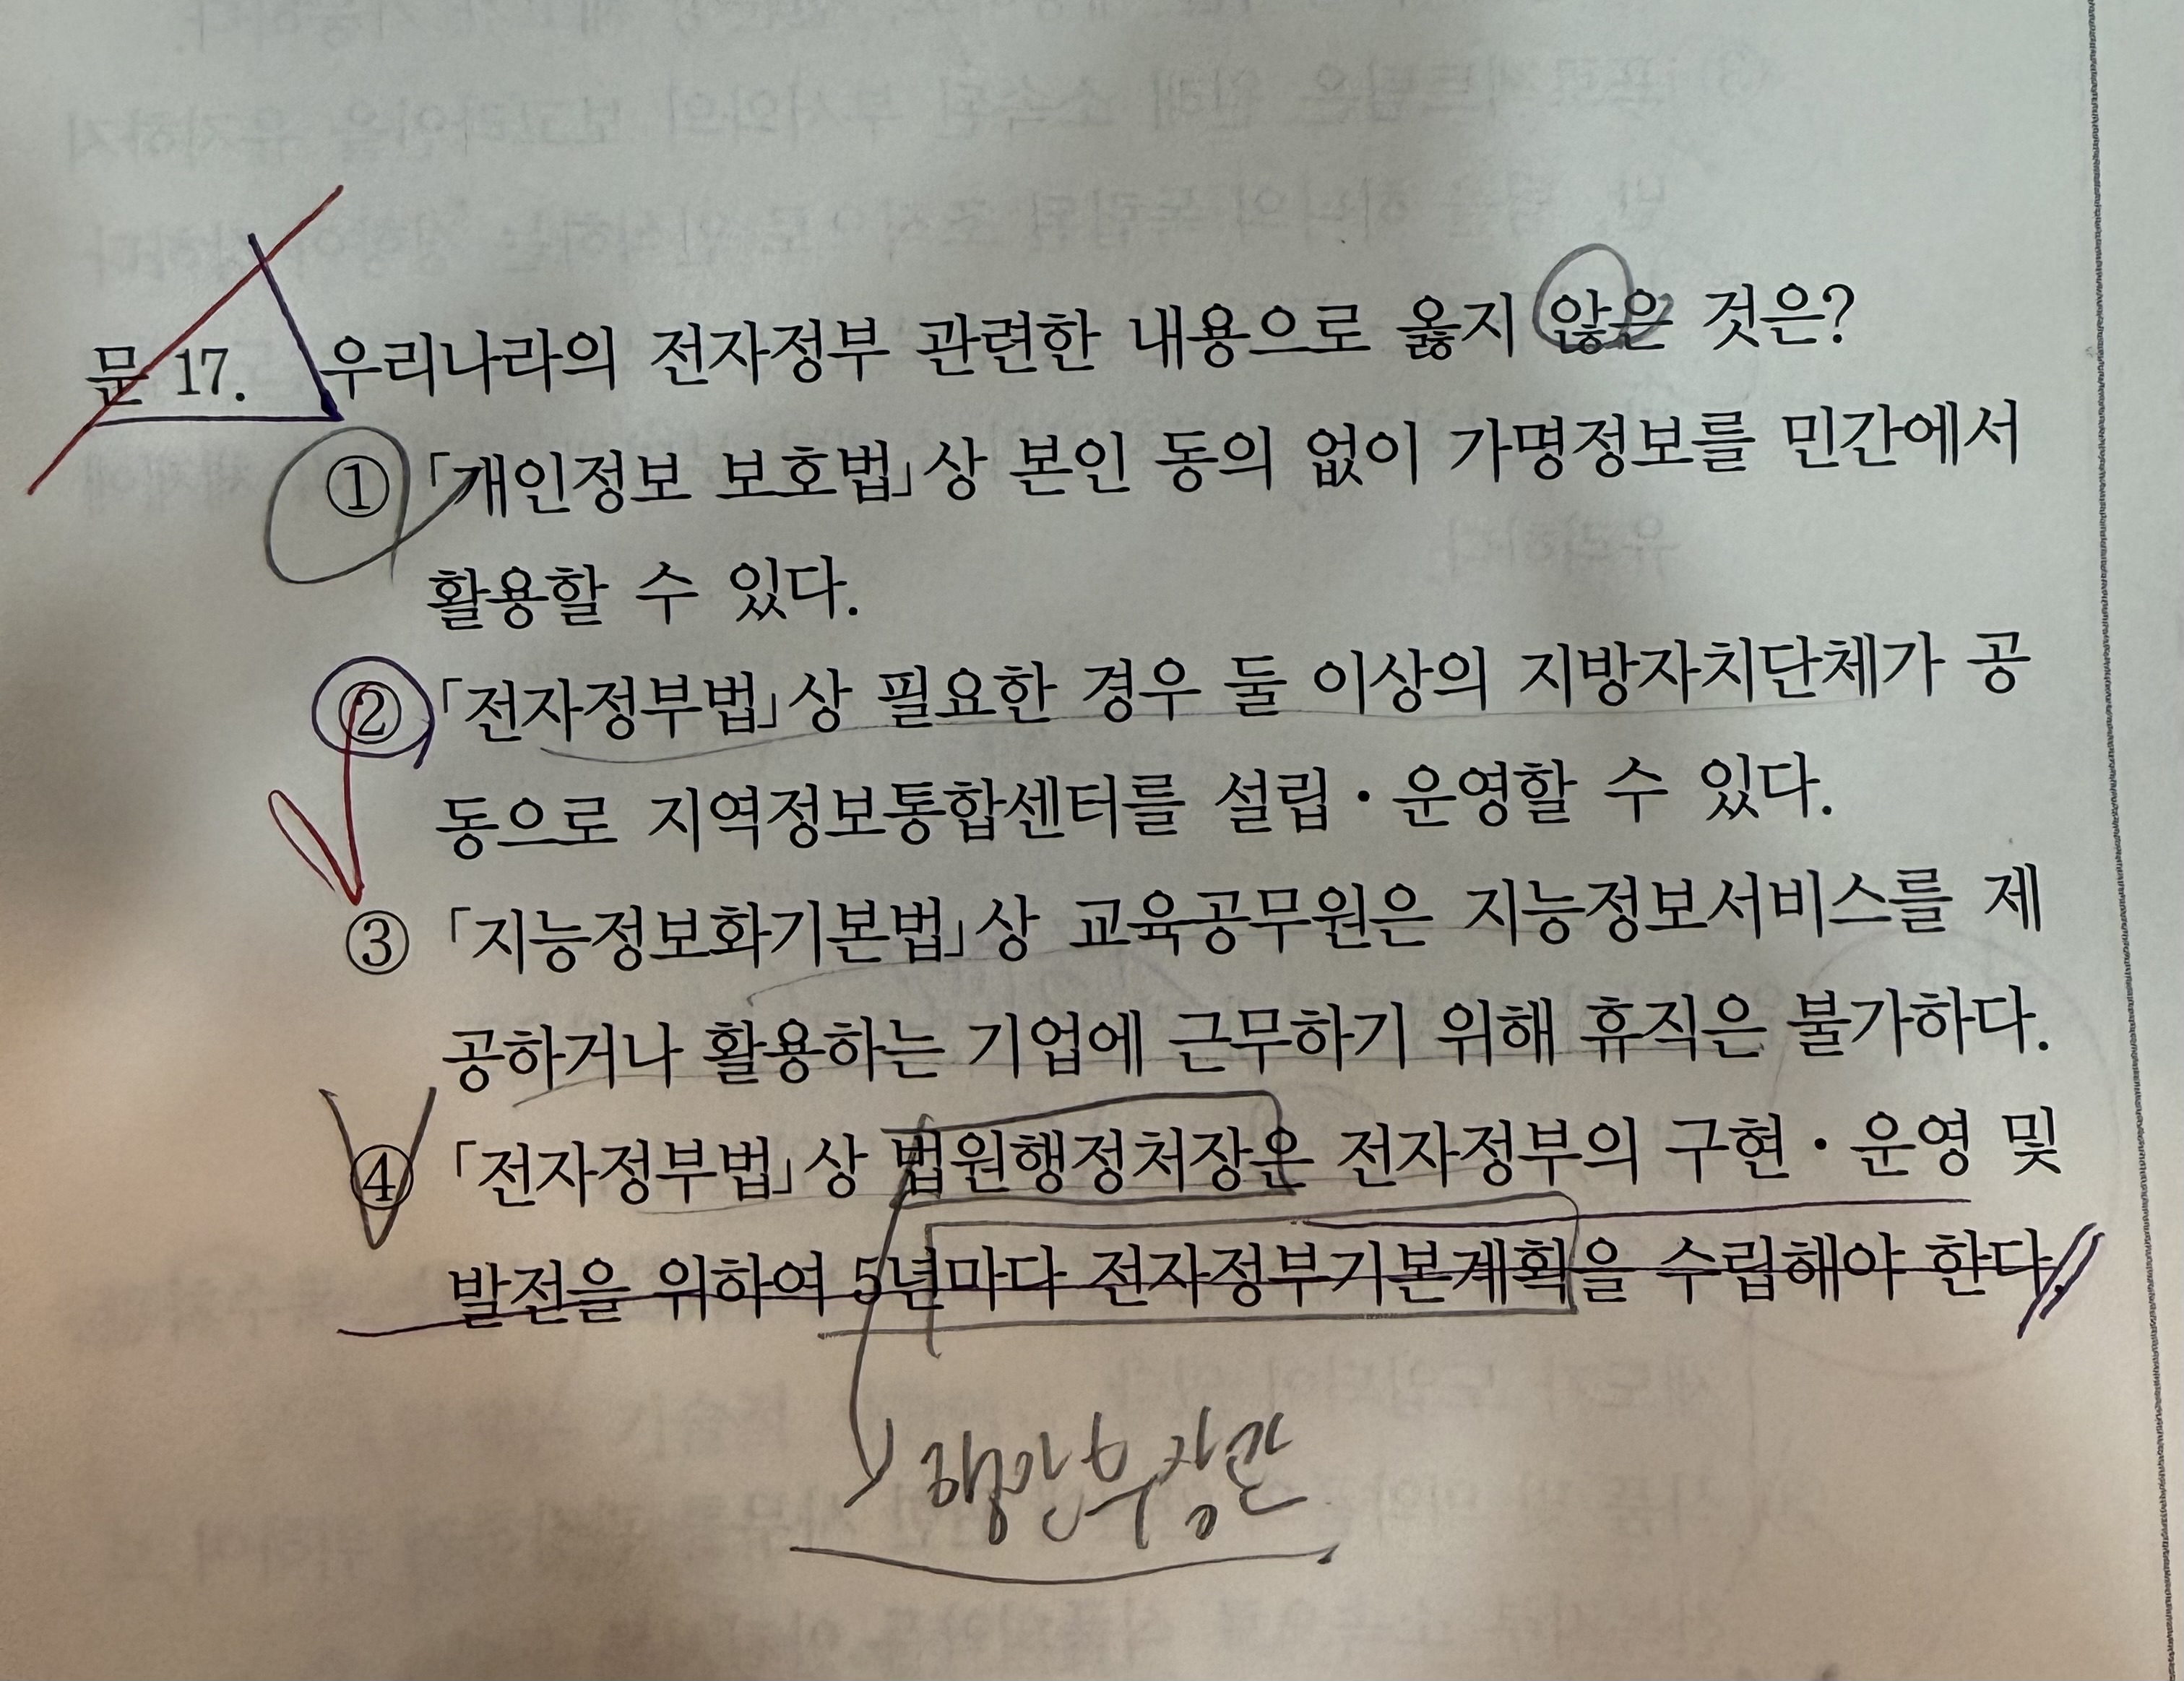 문 17. 우리나라의 전자정부 관련한 내용으로 옳지 않은 것은?
① 「개인정보 보호법」상 본인 동의 없이 가명정보를 민간에서
활용할 수 있다.
② 「전자정부법」상 필요한 경우 둘 이상의 지방자치단체가 공
동으로 지역정보통합센터를 설립・운영할 수 있다.
③ 「지능정보화기본법」상 교육공무원은 지능정보서비스를 제
공하거나 활용하는 기업에 근무하기 위해 휴직은 불가하다.
④ 「전자정부법」상 법원행정처장은 전자정부의 구현・운영 및
발전을 위하여 5년마다 전자정부기본계획을 수립해야 한다.
행안부장관